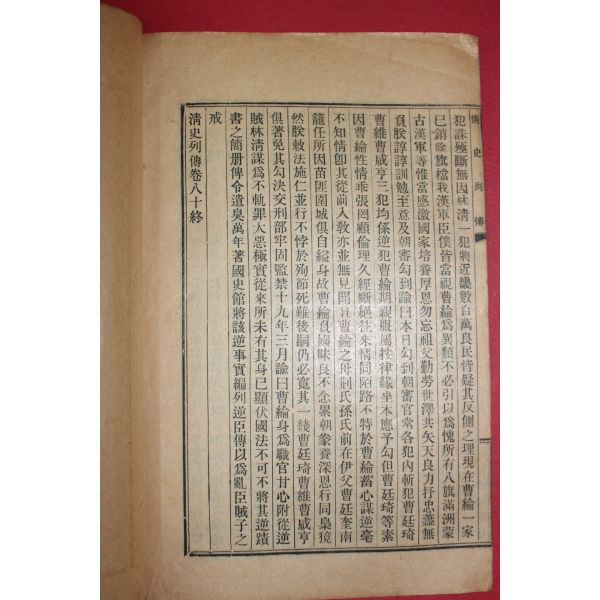 清史列傳
犯誅殛斷無因林清一犯將近畿數百萬良民皆疑其反側之理現在曹綸一家
已銷除旗檔我漢軍臣僕皆當視曹綸爲異類不必引以爲愧所有八旗滿洲蒙
古漢軍等惟當感激國家培養厚恩勿忘祖父勤勞世澤共矢天良力抒忠藎無
負朕諄諄訓勉至意及朝審勾到諭曰本日勾到朝審官常各犯內斬犯曹廷琦
曹維曹咸亨三犯均係逆犯曹綸期親服屬按律緣坐本應予勾但曹廷琦等素
因曹綸性情乖張罔顧倫理久經斷絕往來情同陌路不特於曹綸蓄心謀逆毫
不知情卽其從前入教亦並無見聞且曹綸之母荆氏孫氏前在伊父曹廷奎南
籠任所因苗匪圍城俱自縊身故曹綸負國昧良不念累朝豢養深恩行同梟獍
然朕敕法施仁並行不悖於殉節死難後嗣仍必寬其一綫曹廷琦曹維曹咸亨
俱著免其勾決交刑部牢固監禁十九年三月諭曰曹綸身爲職官甘心附從逆
賊林清謀爲不軌罪大惡極實從來所未有其身已顯伏國法不可不將其逆蹟
書之簡册俾令遺臭萬年著國史館將該逆事實編列逆臣傳以爲亂臣賊子之
戒
清史列傳卷八十終